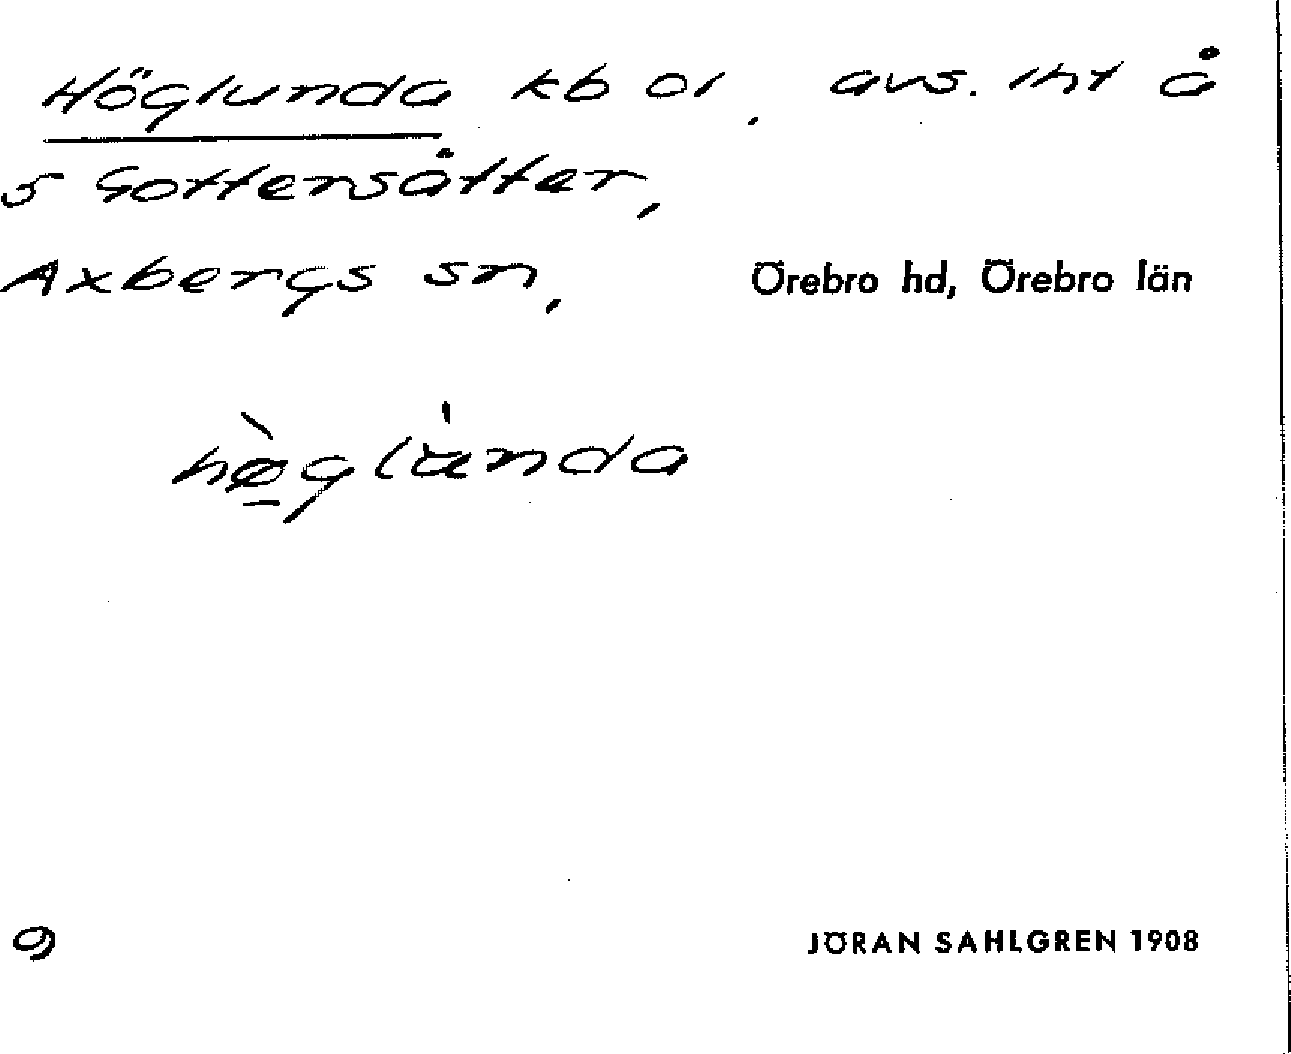 Höglunda kb 01, avs. lht å
5 Gottersätter,
Axbergs sn, Örebro hd, Örebro län
hø̀glùnda
9
JÖRAN SAHLGREN 1908